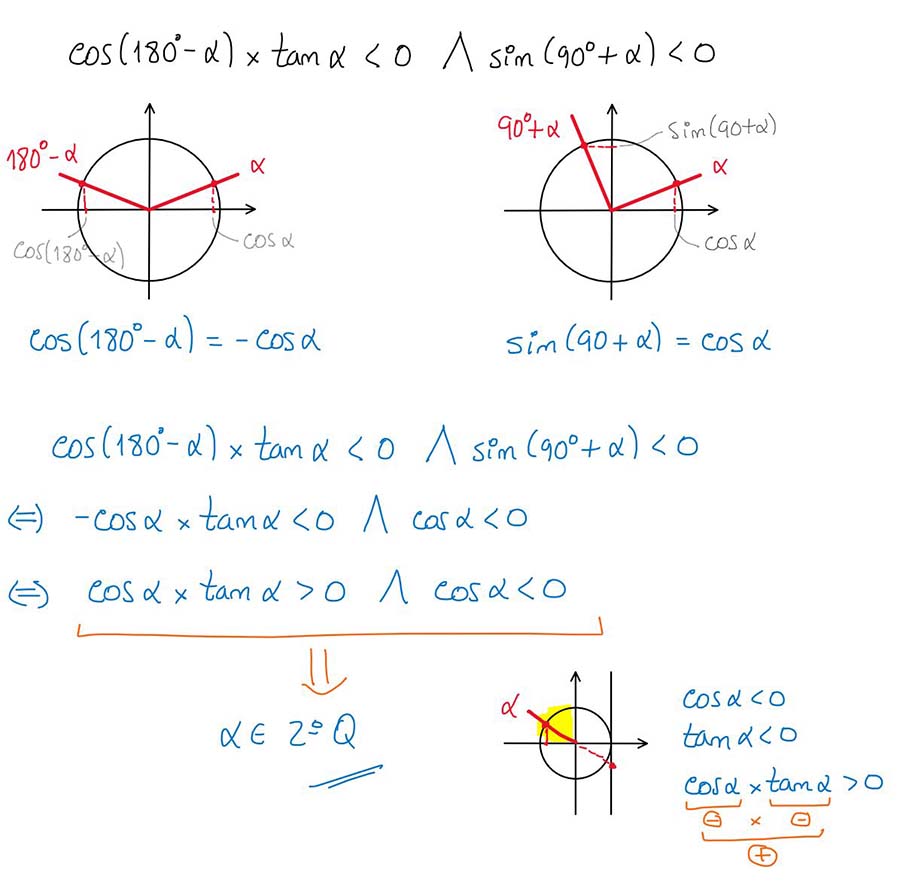 cos(180°-α) × tan α < 0 ∧ sin(90°+α) < 0
180°-α
α
cos(180°-α)
cos α
90°+α
sin(90+α)
α
cos α
cos(180°-α) = -cos α
sin(90+α) = cos α
cos(180°-α) × tan α < 0 ∧ sin(90°+α) < 0
⇔ -cos α × tan α < 0 ∧ cos α < 0
⇔ cos α × tan α > 0 ∧ cos α < 0
⇓
α ∈ 2º Q
α
cos α < 0
tan α < 0
cos α × tan α > 0
⊖ × ⊖
⊕